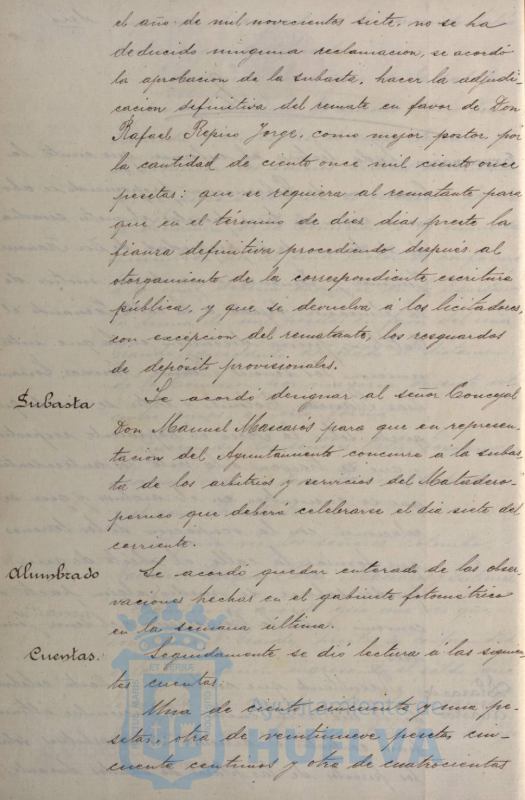 el año de mil novecientos siete, no se ha
deducido ninguna reclamacion, se acordó
la aprobacion de la subasta, hacer la adjudi-
cacion definitiva del remate en favor de Don
Rafael Repiso Jorge, como mejor postor, por
la cantidad de ciento once mil ciento once
pesetas: que se requiera al rematante para
que en el término de diez dias preste la
fianza definitiva procediendo después al
otorgamiento de la correspondiente escritura
pública, y que se devuelva á los licitadores,
con excepcion del rematante, los resguardos
de depósito provisionales.
Subasta
Se acordó designar al señor Concejal
Don Manuel Mascarós para que en represen-
tacion del Ayuntamiento concurra á la subas-
ta de los arbitrios y servicios del Matadero-
porcuco que deberá celebrarse el dia siete del
corriente.
Alumbrado
Se acordó quedar enterado de las obser-
vaciones hechas en el gabinete fotométrico
en la semana última.
Cuentas.
Seguidamente se dió lectura á las siguien-
tes cuentas:
Una de ciento cincuenta y una pe-
setas, otra de veintinueve pesetas cin-
cuenta centimos y otra de cuatrocientas
Ayuntamiento de
HUELVA